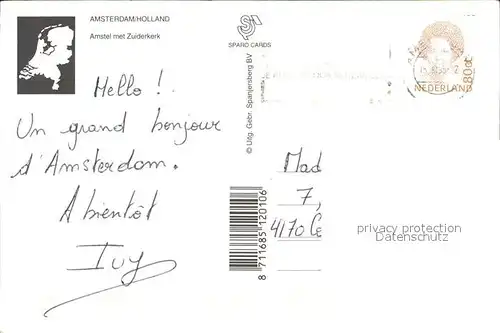 AMSTERDAM/HOLLAND
Amstel met Zuiderkerk
Hello !
Un grand bonjour
d'Amsterdam.
A bientôt
Ivy
SPARO CARDS
© Uitg. Gebr. Spanjersberg BV
8 711685 120106
80 ct
NEDERLAND
Mad
7,
4170 Ce
privacy protection
Datenschutz